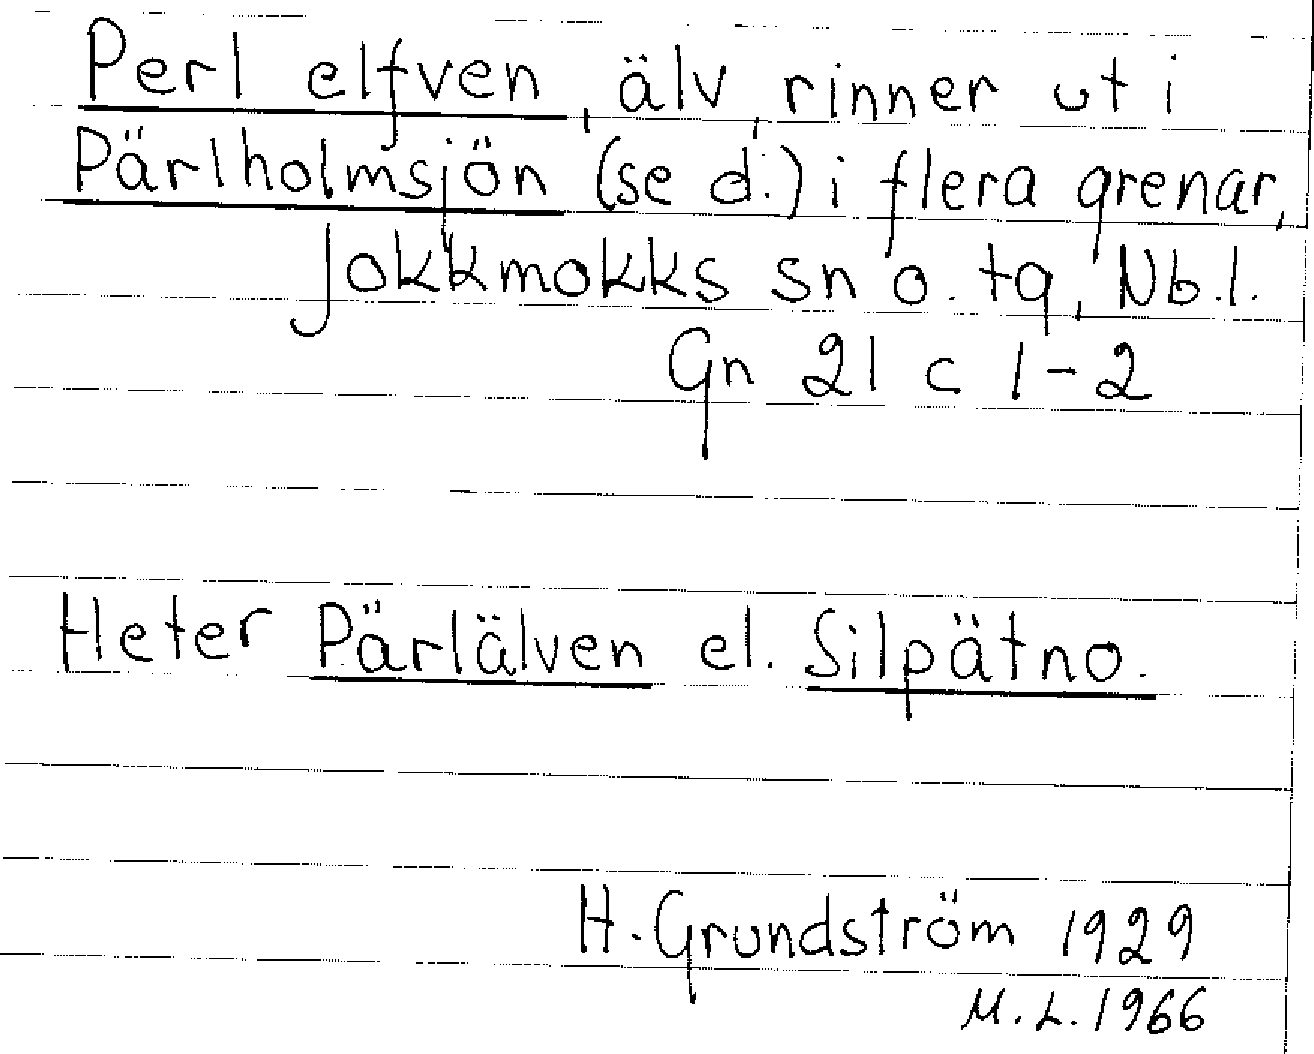 Perl elfven, älv, rinner ut i
Pärlholmsjön (se d.) i flera grenar,
Jokkmokks sn o. tg, Nb.l.
Gn 21 c 1-2
Heter Pärlälven el. Silpätno.
H. Grundström 1929
M.L. 1966